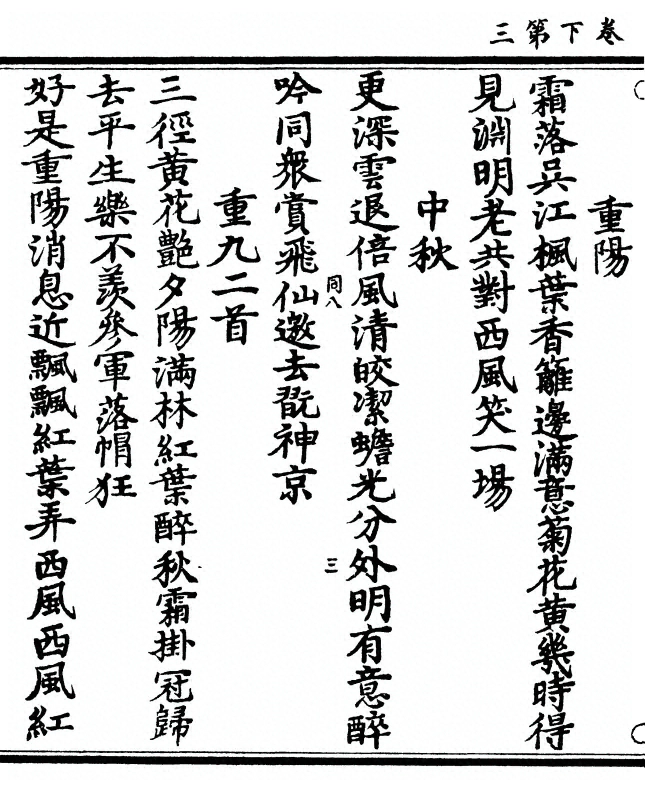 卷下第三
重陽
霜落吳江楓葉香籬邊滿意菊花黄幾時得
見淵明老共對西風笑一場
中秋
更深雲退倍風清皎潔蟾光分外明有意醉
同八
三
吟同衆賞飛仙邀去翫神京
重九二首
三徑黄花艷夕陽滿林紅葉醉秋霜掛冠歸
去平生樂不羡參軍落帽狂
好是重陽消息近飄飄紅葉弄西風西風紅